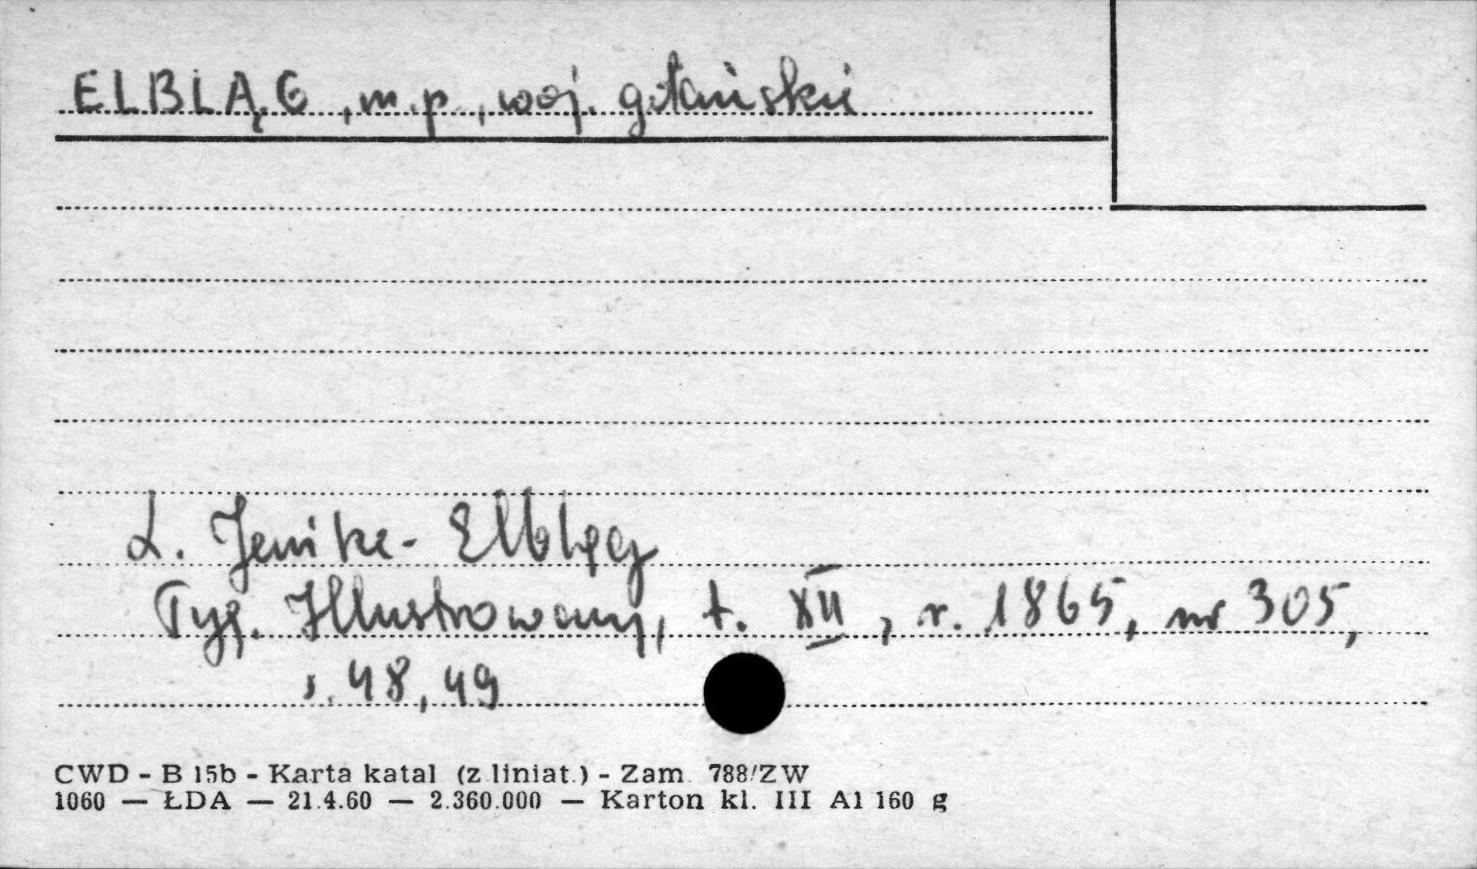 ELBLĄG, m.p., woj. gdański
L. Jenike - Elbląg
Tyg. Illustrowany, t. XII, r. 1865, nr 305,
s. 48, 49
CWD - B 15b - Karta katal (z liniat.) - Zam. 788/ZW
1060 — ŁDA — 21.4.60 — 2.360.000 — Karton kl. III A1 160 g